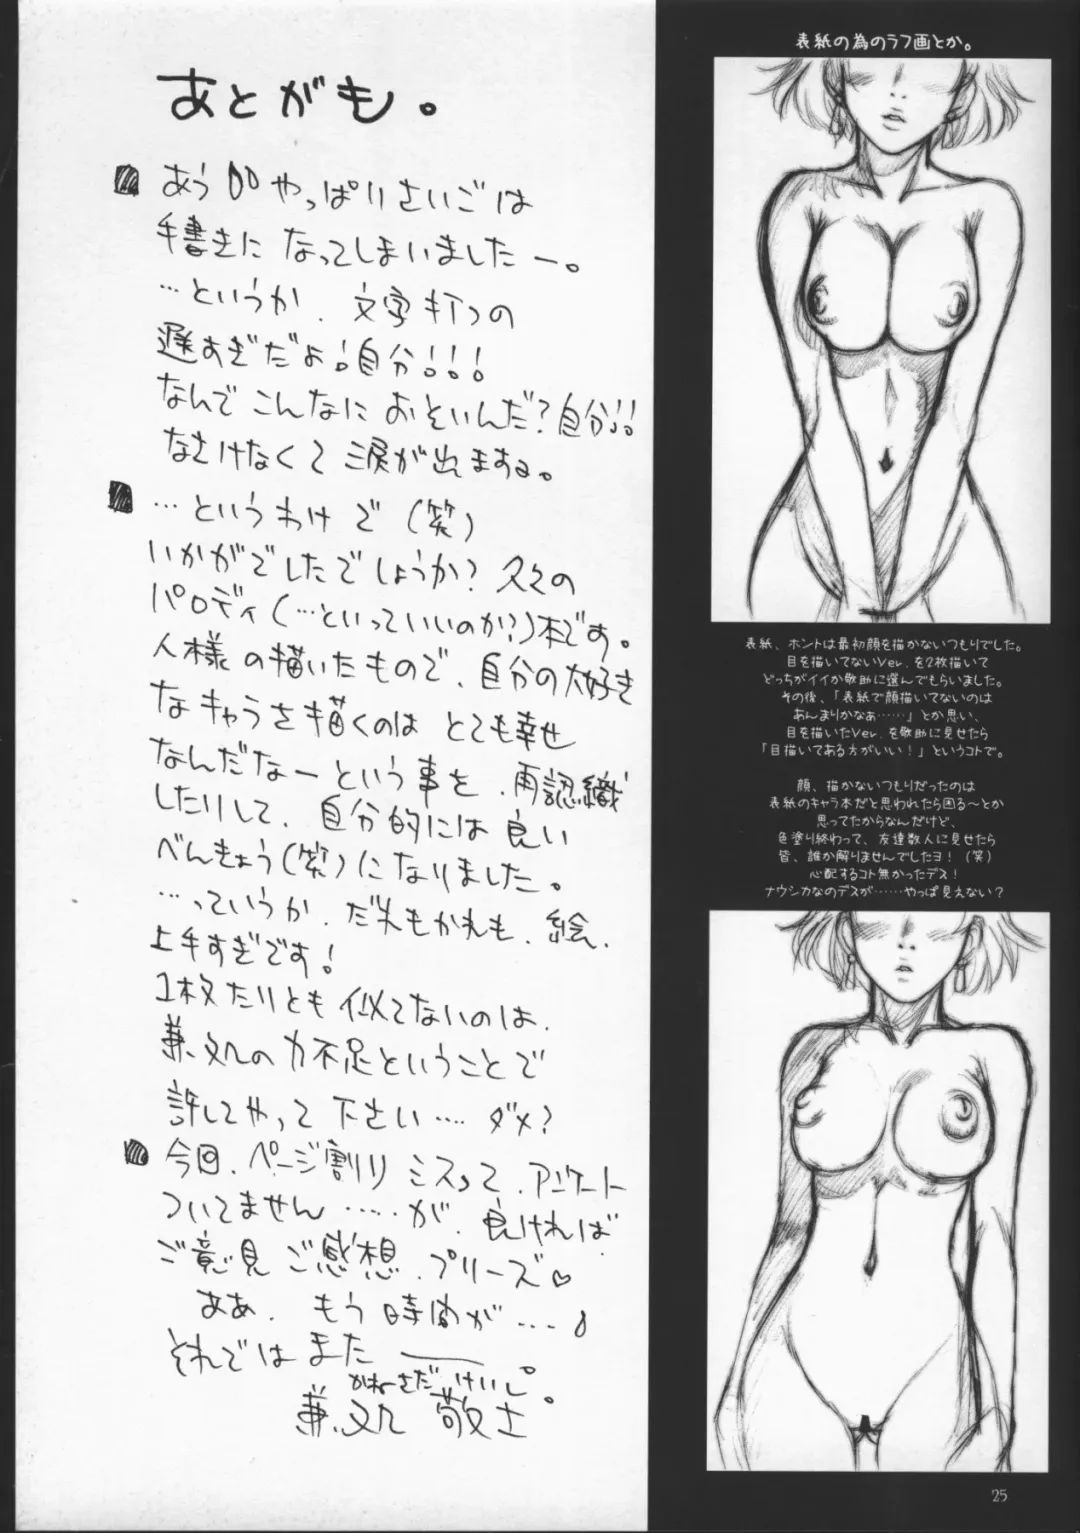 あとがも。
あう やっぱりさいごは
手書きに なってしまいましたー。
…というか、文字打つの
遅すぎだよ!自分!!!
なんで こんなに おそいんだ?自分!!
なさけなくて 涙が出まする。
…というわけで(笑)
いかがでしたでしょうか? 久々の
パロディ(…といっていいのか?)本です。
人様の描いたもので、自分の大好き
なキャラを描くのは とても幸せ
なんだなーという事を、再認織
したりして、自分的には良い
べんきょう(笑)になりました。
…っていうか、だれもかれも、絵、
上手すぎです!
1枚たりとも似てないのは、
兼処の力不足ということで
許してやって下さい…. ダメ?
今回、ページ割りミスって、アンケート
ついてません…..が、良ければ
ご意見 ご感想、プリーズ♡
ああ、もう時間が….
それでは また ――。
かねさだ けいし。
兼処 敬士
表紙の為のラフ画とか。
表紙、ホントは最初顔を描かないつもりでした。
目を描いてないVer.を2枚描いて
どっちがイイか敬助に選んでもらいました。
その後、「表紙で顔描いてないのは
あんまりかなあ……」とか思い、
目を描いたVer.を敬助に見せたら
「目描いてある方がいい!」というコトで。
顔、描かないつもりだったのは
表紙のキャラ本だと思われたら困る〜とか
思ってたからなんだけど、
色塗り終わって、友達数人に見せたら
皆、誰か解りませんでしたヨ!(笑)
心配するコト無かったデス!
ナウシカなのデスが……やっぱ見えない?
25